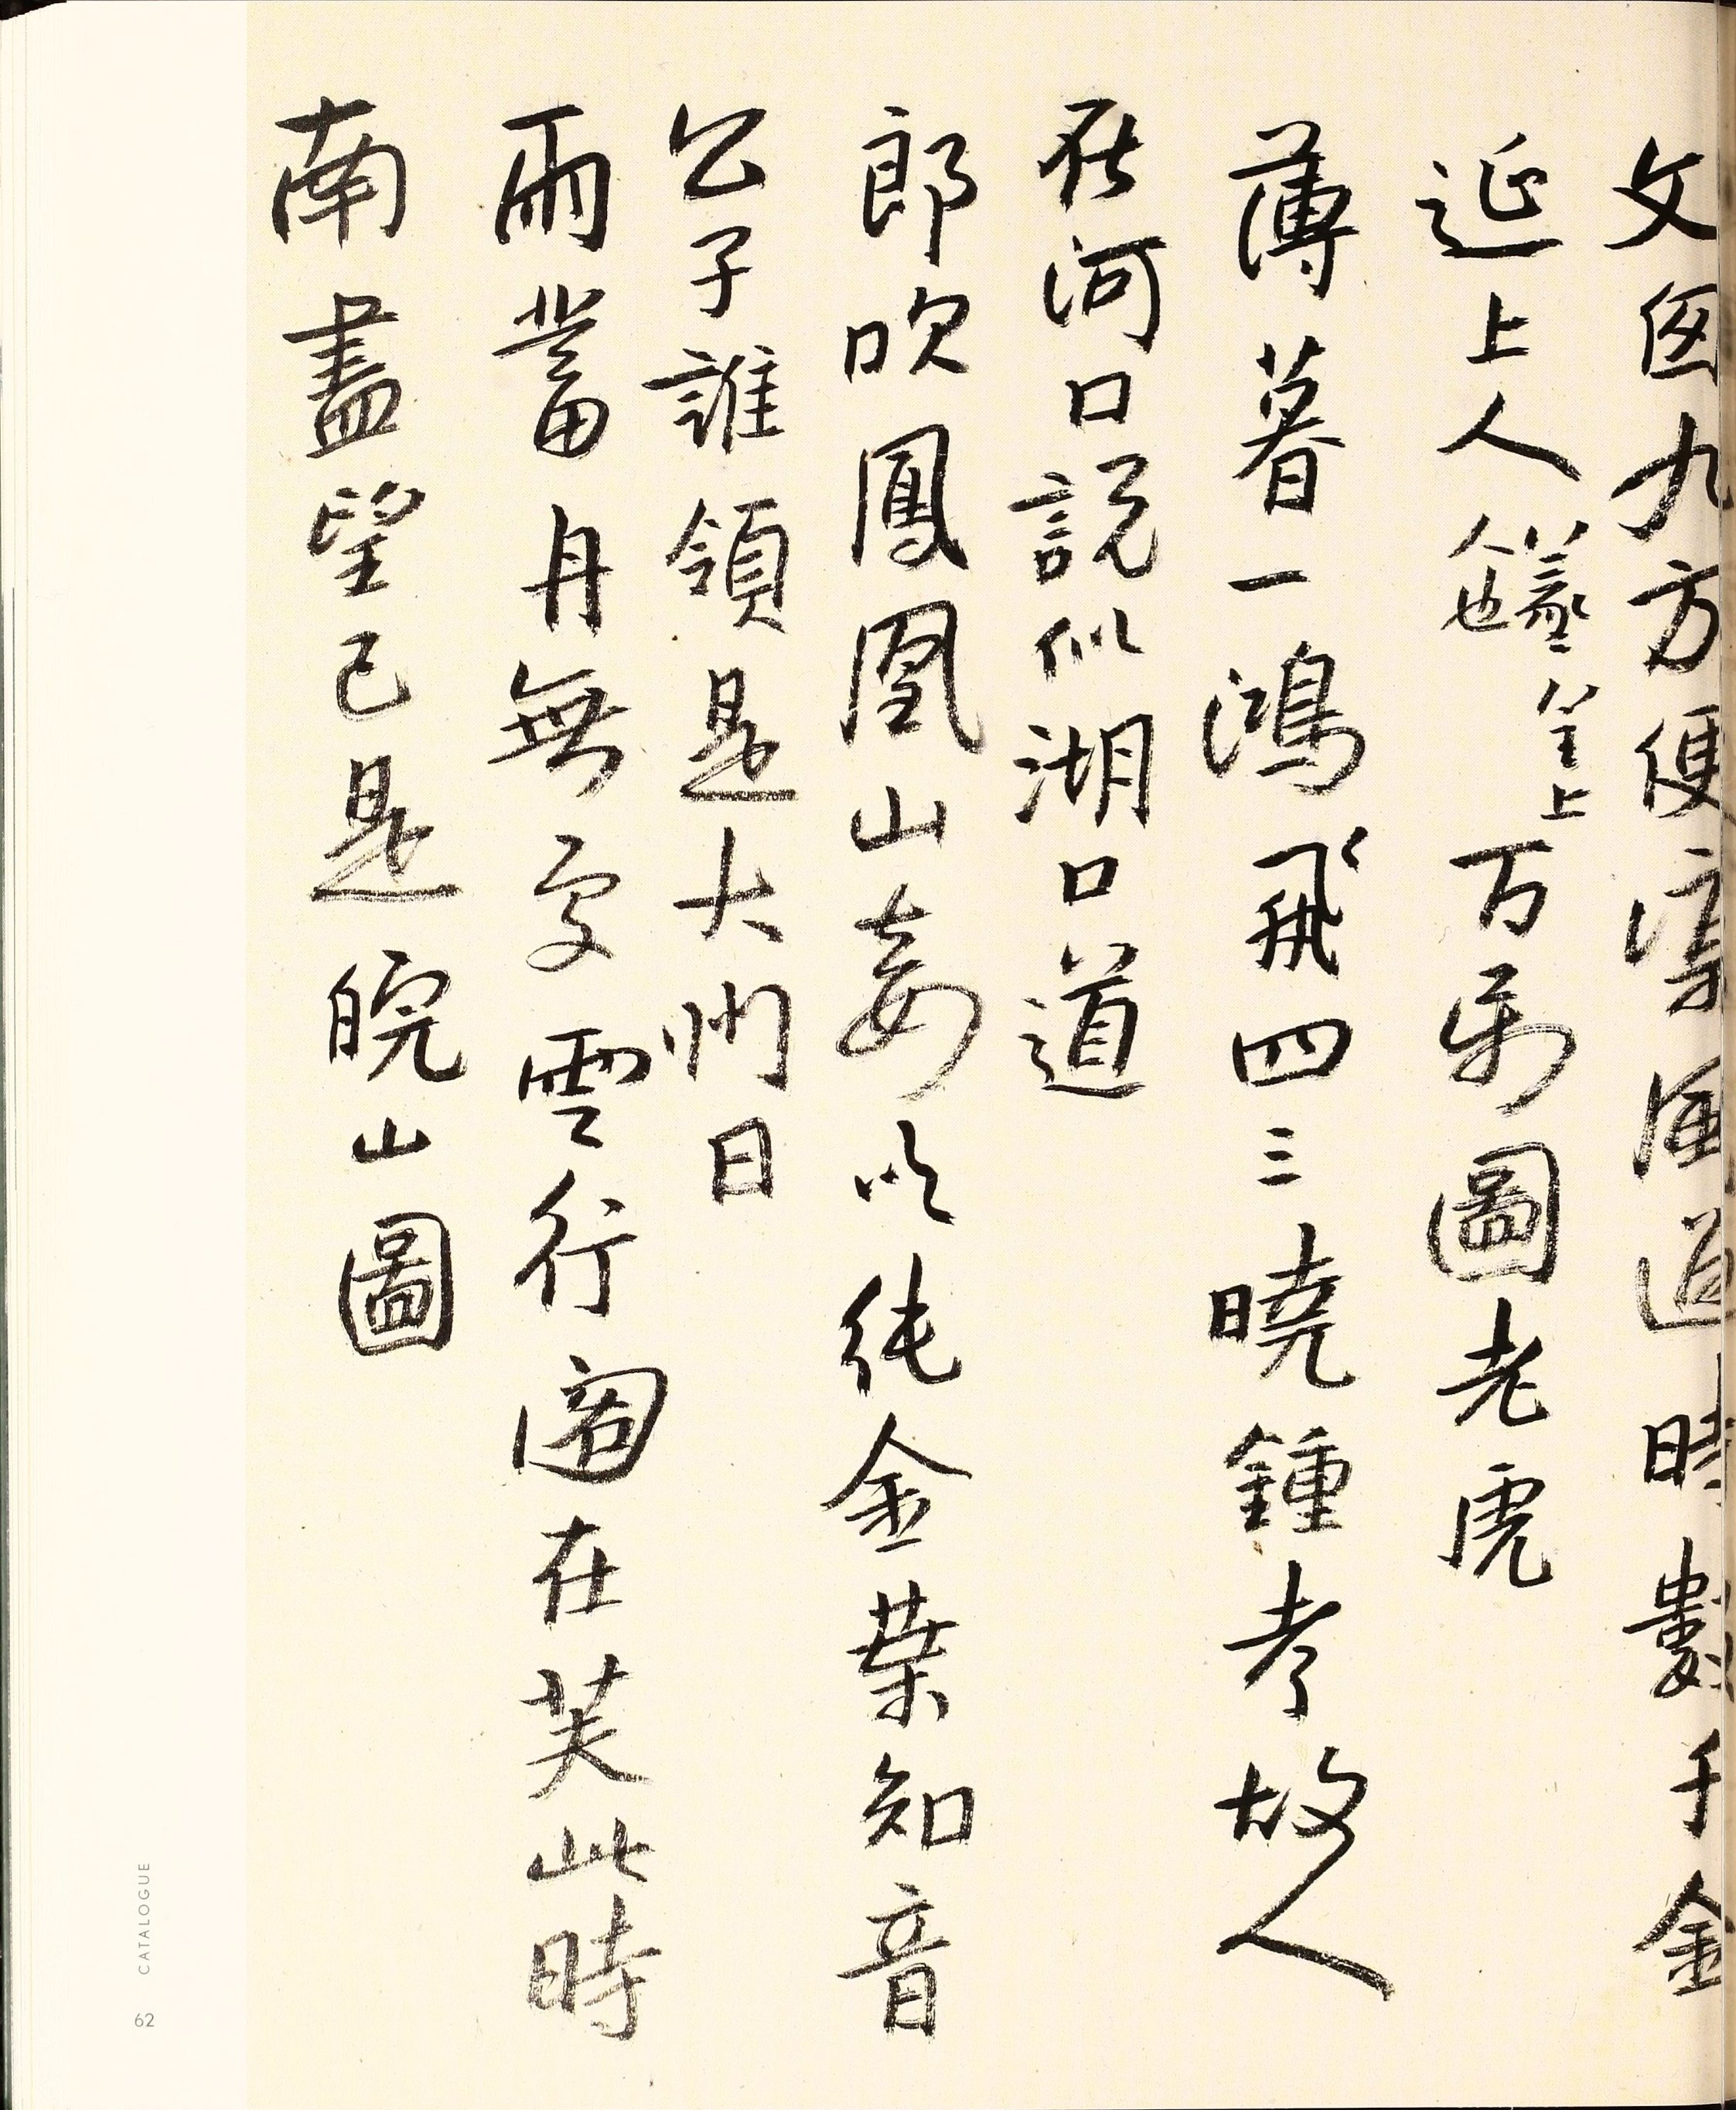 文函九方便淳道時數千金
延上人
也
上
百圖老虎
薄暮一鴻飛四三曉鍾考故人
在河口說似湖口道
郎吹鳳凰山妾以純金葉知音
公子誰領是大州日
雨蓄丹無處雲行閣在芙此時
南盡望已是皖山圖
CATALOGUE
62